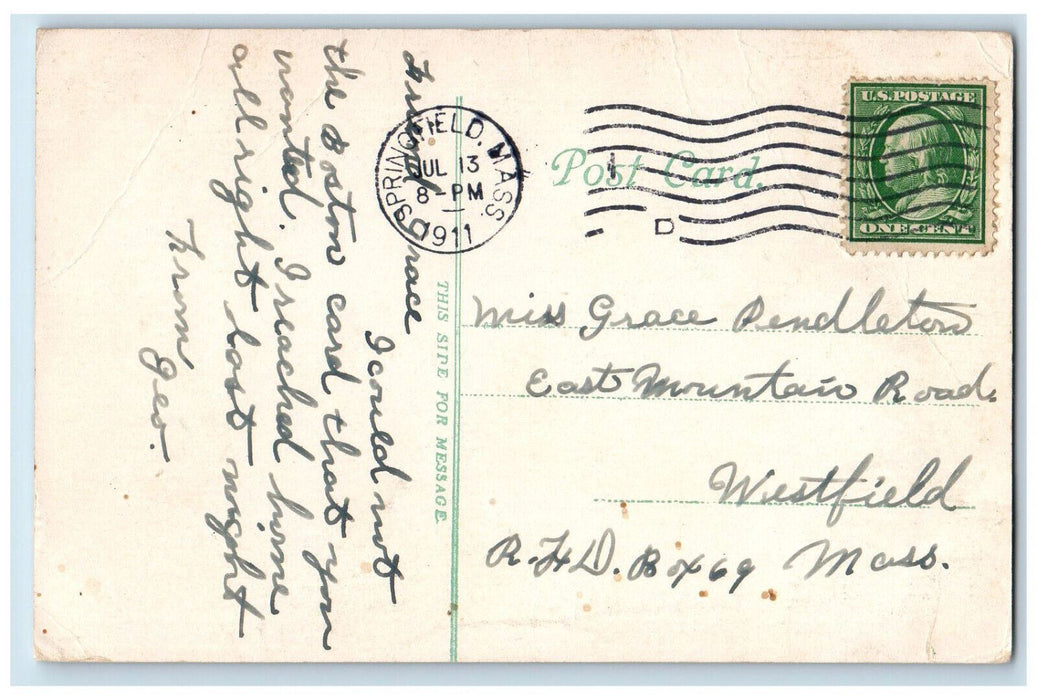 Friend Grace
I could not
the Boston card that you
wanted. I reached home
allright last night
From
Geo.
THIS SIDE FOR MESSAGE
SPRINGFIELD, MASS.
JUL 13
8-PM
1911
D
Post Card.
U.S. POSTAGE
ONE CENT
Miss Grace Pendleton
East Mountain Road.
Westfield
R.F.D. Box 69 Mass.